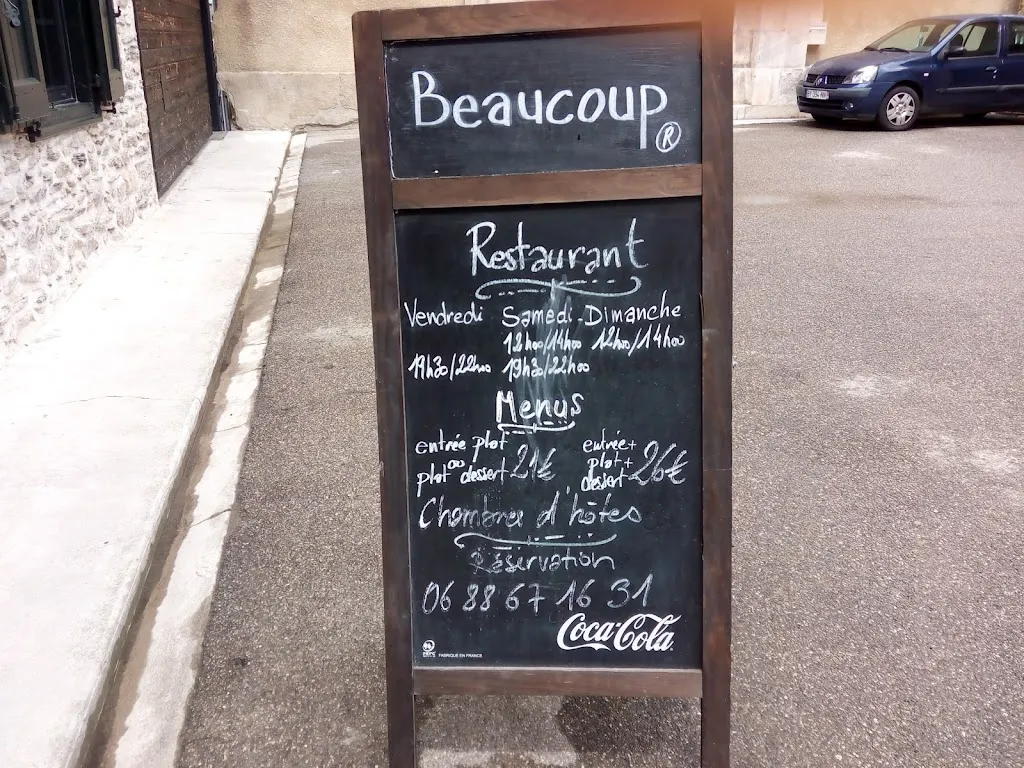 Beaucoup
®
Restaurant
Vendredi Samedi - Dimanche
12h00/14h00 12h00/14h00
19h30/22h00 19h30/22h00
Menus
entrée plat
ou
plat dessert 21€
entrée+
plat+
dessert 26€
Chambres d'hôtes
Réservation
06 88 67 16 31
Coca-Cola
FABRIQUÉ EN FRANCE